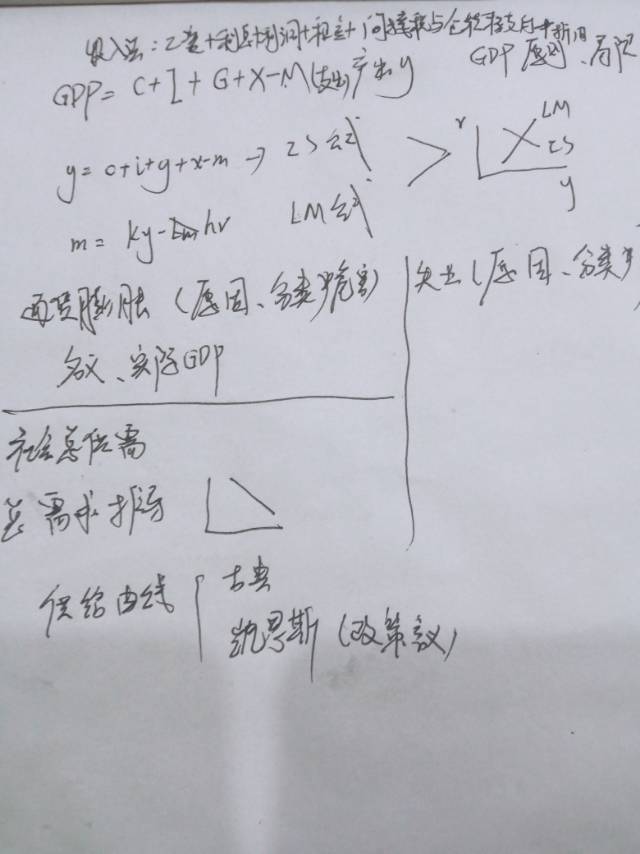 收入法：工资+利息+利润+租金+间接税与企业转移支付+折旧
GDP= C+I+G+X-M(支出)产出y GDP 原则、局限
y= c+i+g+x-m → IS 公式
m= ky-hr LM 公式
r LM IS y
通货膨胀（原因、分类、危害）
失业（原因、分类
名义、实际GDP
社会总供需
总需求推导
供给曲线 古典
凯恩斯（政策含义）